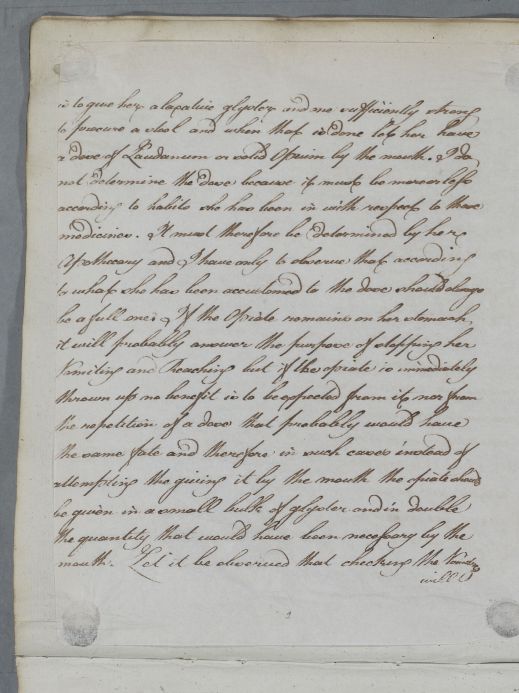 is to give her a laxative glyster and me sufficiently strong
to procure a stool and when that is done let her have
a dose of Laudanum or solid Opium by the mouth. I do
not determine the dose because it must be more or less
according to habits she has been in with respect to these
medicines. It must therefore be determined by her
Apothecary and I have only to observe that according
to what she has been accustomed to the dose should always
be a full one. If the Opiate remains on her stomach
it will probably answer the purpose of stopping her
Vomiting and Reaching but if the opiate is immediately
thrown up no benefit is to be expected from it, nor from
the repetition of a dose that probably would have
the same fate and therefore in such cases instead of
attempting the giving it by the mouth the opiate should
be given in a small bulk of glyster and in double
the quantity that would have been necessary by the
mouth. Let it be observed that checking the Vomiting
will